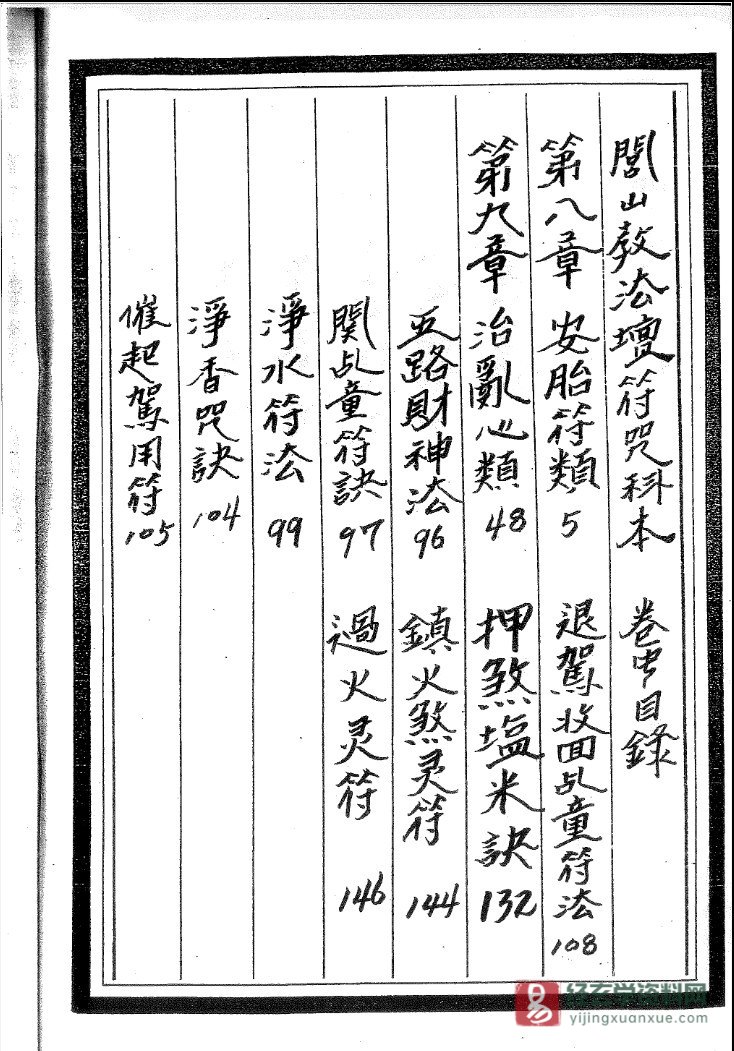 閭山教法壇符咒科本　卷中目錄
第八章　安胎符類　5　退駕收回乩童符法　108
第九章　治亂心類　48　押煞塩米訣　132
五路財神法　96　鎮火煞灵符　144
関乩童符訣　97　過火灵符　146
淨水符法　99
淨香咒訣　104
催起駕用符　105
易
经玄学资料网
yijingxuanxue.com